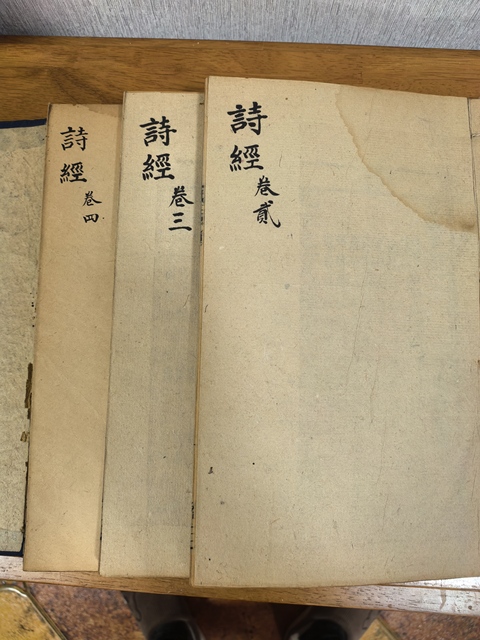 詩經
卷貳
詩經
卷三
詩經
卷四